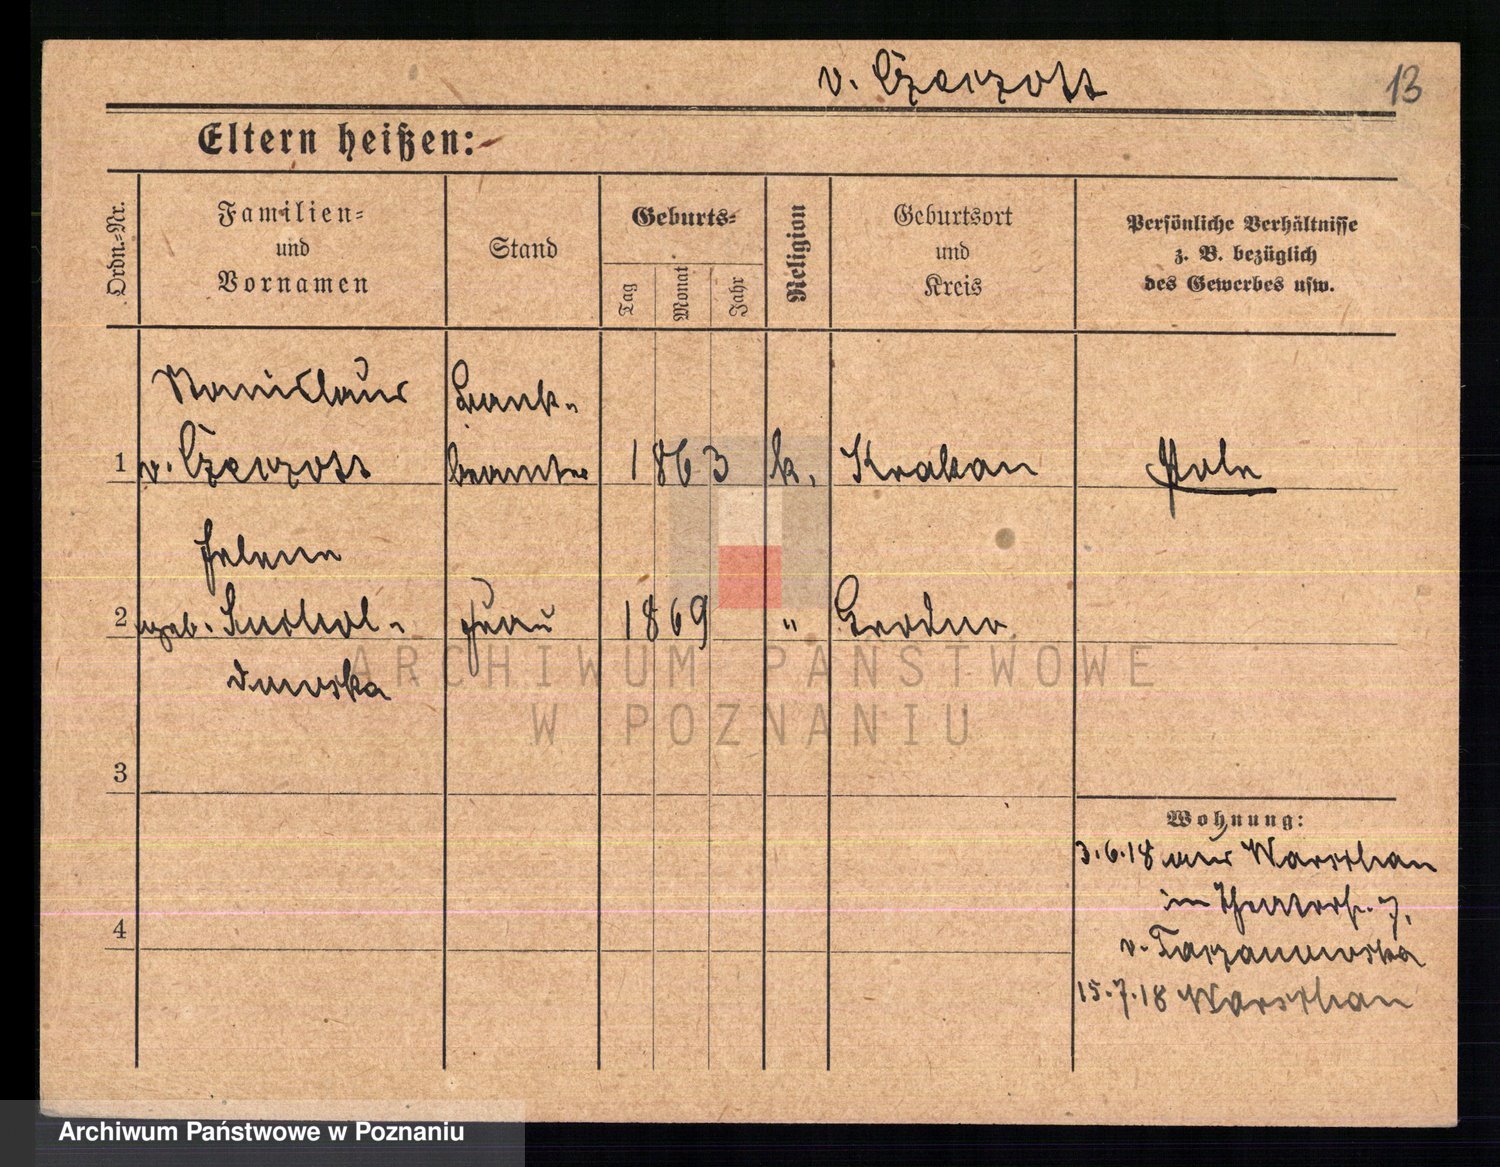 v. Czerzott
13
Eltern heißen:
Ordn.=Nr.
Familien=
und
Vornamen
Stand
Geburts=
Tag
Monat
Jahr
Religion
Geburtsort
und
Kreis
Persönliche Verhältnisse
z. B. bezüglich
des Gewerbes usw.
Stanislaus Bank-
1 v. Czerzott beamter 1863 k. Krakau Pole
Helene
2 geb. Frau 1869 " Grodno
3
4
Wohnung:
3.6.18 aus Warschau
im Theaterstr. 7,
v.
15.7.18 Warschau
ARCHIWUM PAŃSTWOWE
W POZNANIU
Archiwum Państwowe w Poznaniu